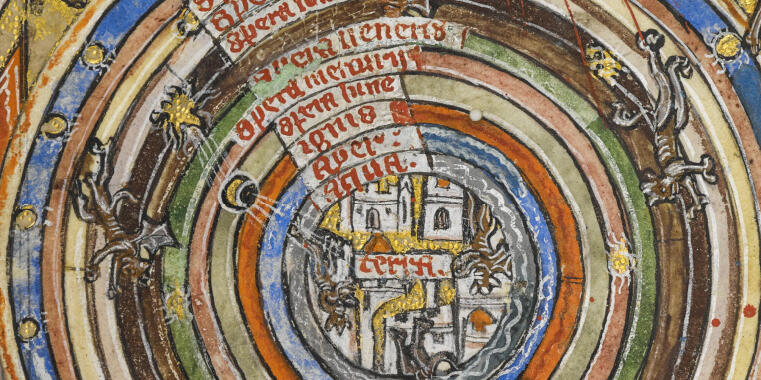 spera ueneris
spera mercurij
spera lune
ignis
Ayer:
Aqua.
terra.